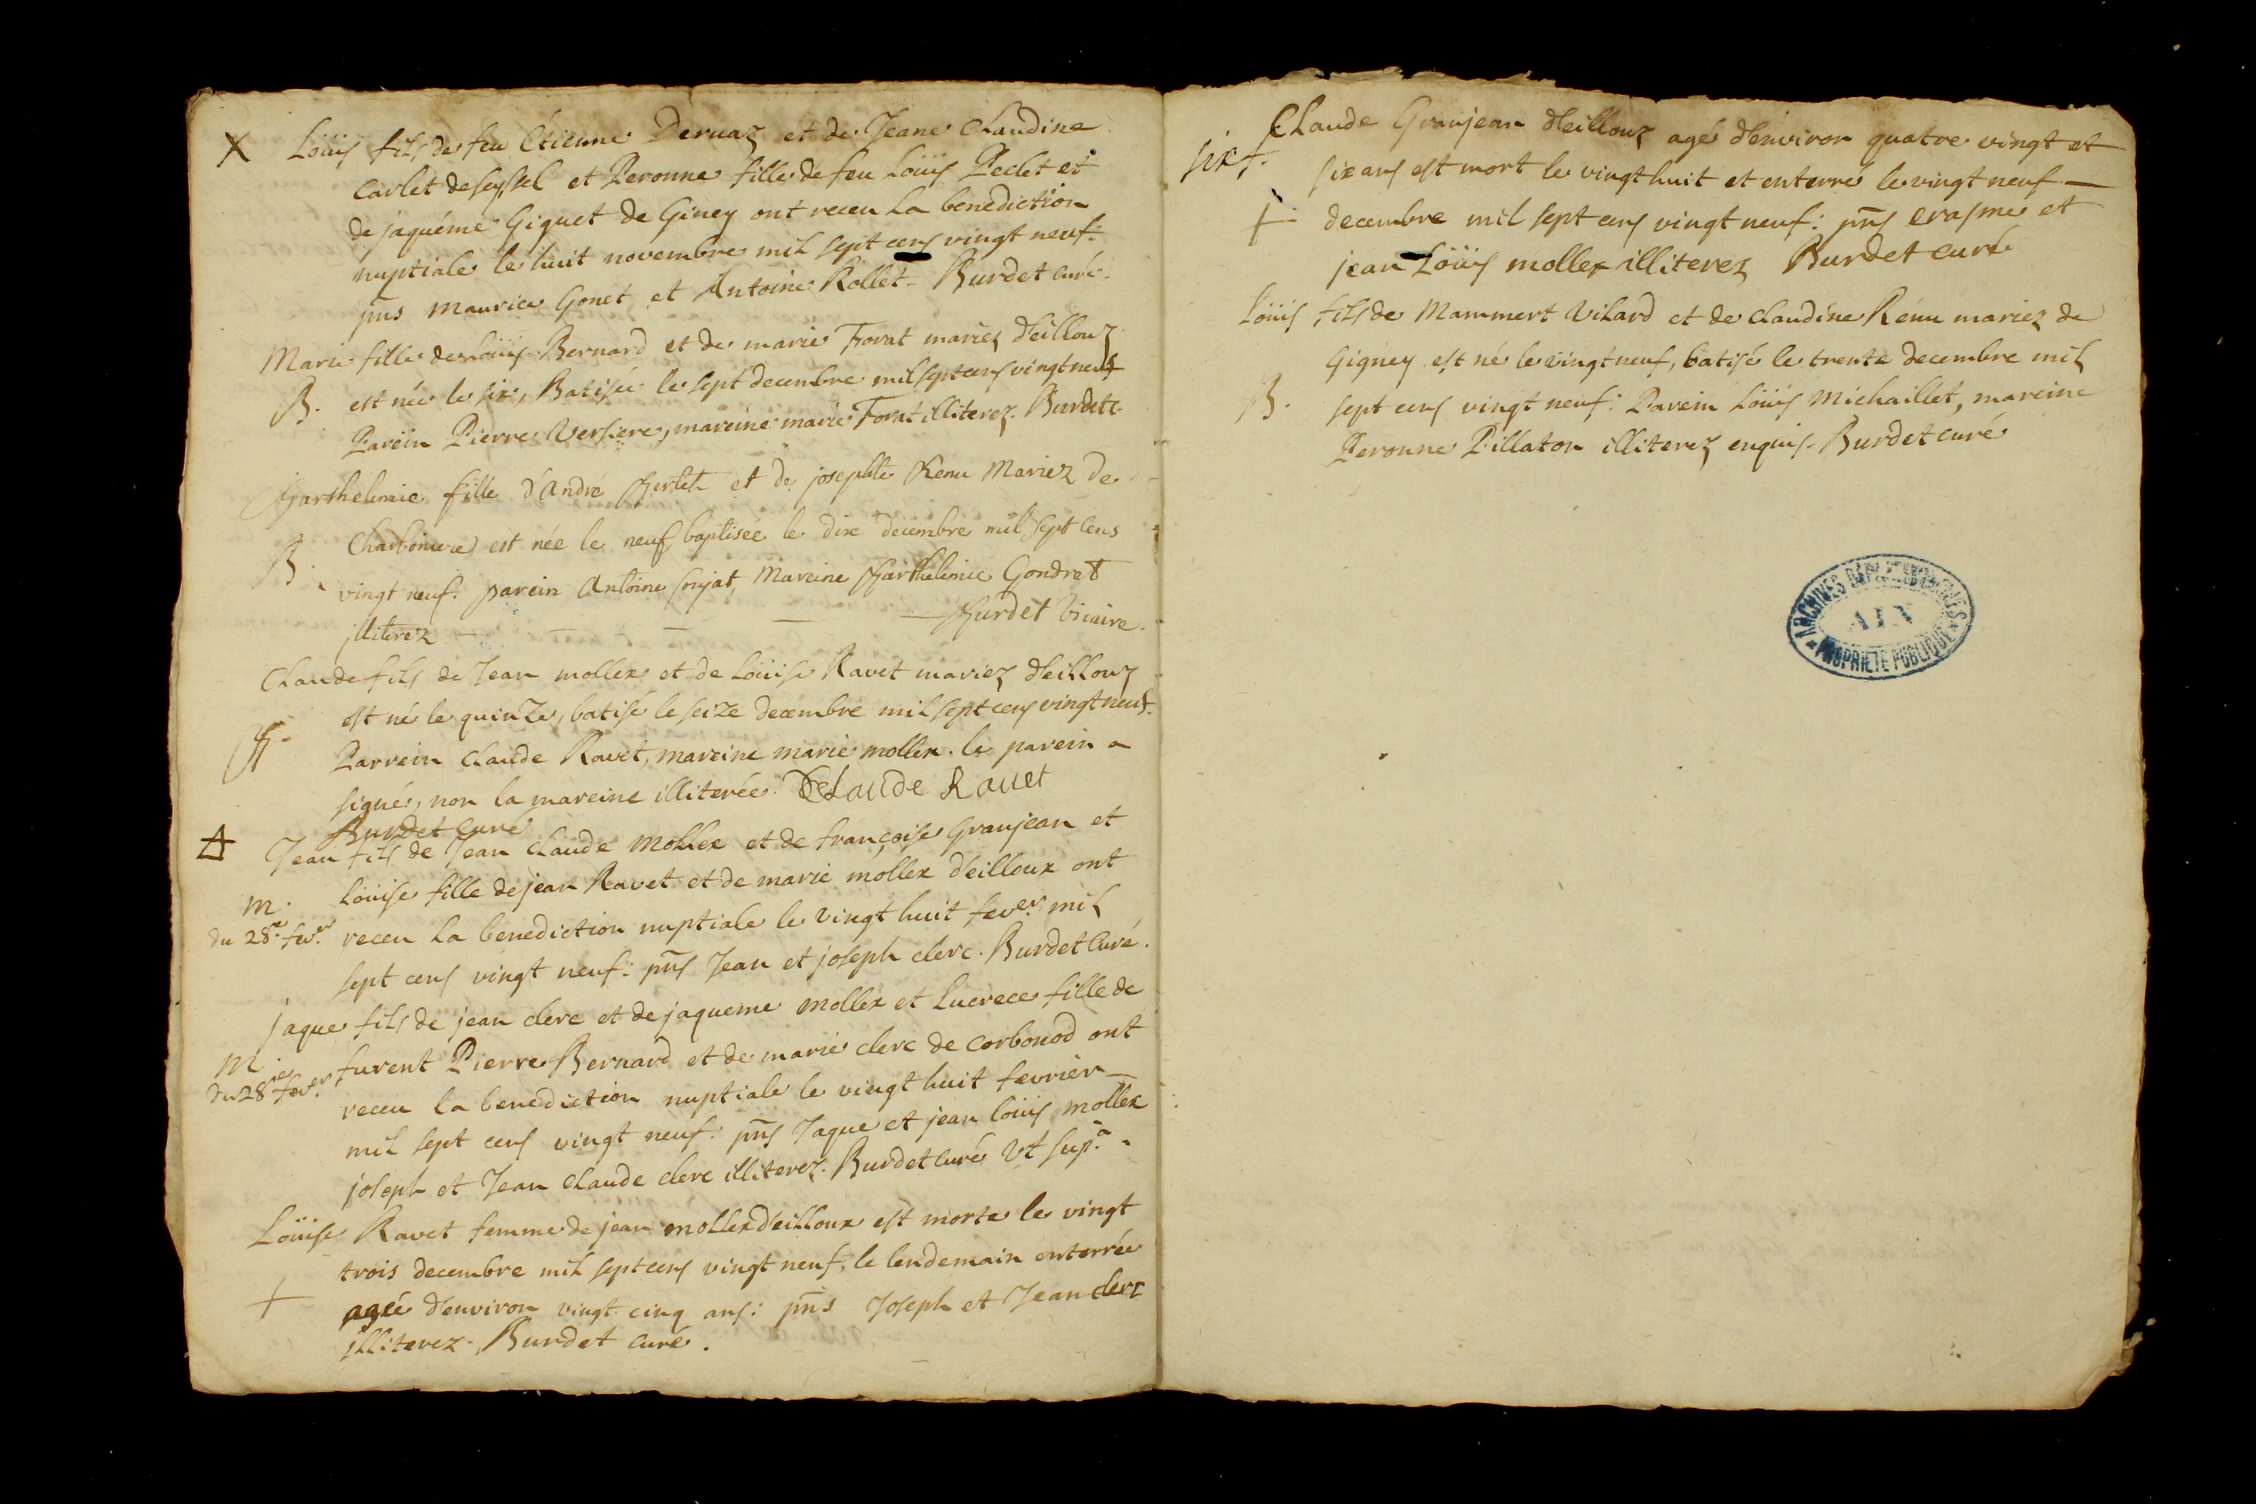 X Loüis fils de feu Étienne Dervaz et de Jeane Claudine
Carlet de Seyssel et Peronne fille de feu Loüis Peclet et
de jaquéme Giguet de Giney ont receu la benediction
nuptiale le huit novembre mil sept cens vingt neuf:
pn̄s Maurice Gonet et Antoine Rollet. Burdet curé.
Marie fille de Loüis Bernard et de marie Forat mariez d'eillouz
B. est née le six, Batisée le sept decembre mil sept cens vingt neuf
Parein Pierre Versiere, mareine marie Forat illiterez. Burdet c.
Barthelemie fille d'André Berlet et de josephte Renu Mariez de
B. Charboniere est née le neuf baptisée le dix decembre mil sept cens
vingt neuf: parein Antoine Sonjat, Mareine Barthelemie Gondret
illiterez — — — — Burdet Vicaire.
Claude fils de Jean mollex et de Loüise Ravet mariez d'eillouz
est né le quinze, batisé le seize decembre mil sept cens vingt neuf.
B. Parrein Claude Ravet, mareine marie mollex. le parein a
signé, non la mareine illiterée. Claude Ravet
Burdet curé
Jean fils de Jean Claude Mollex et de françoise Granjean et
m. Loüise fille de jean Ravet et de marie mollex d'eilloux ont
du 28e fever. receu la benediction nuptiale le vingt huit fever. mil
sept cens vingt neuf: pn̄s Jean et joseph clerc. Burdet Curé.
jaque fils de jean clerc et de jaqueme mollex et Lucrece fille de
M furent Pierre Bernard et de marie clerc de Corbonod ont
du 28ie fever. receu la benediction nuptiale le vingt huit fevrier —
mil sept cens vingt neuf: pn̄s Jaque et jean loüis mollex
joseph et Jean Claude clerc illiterez. Burdet Curé Vt sup.a
Loüise Ravet femme de jean mollex d'eilloux est morte le vingt
trois decembre mil sept cens vingt neuf, le lendemain enterrée
+ agée d'environ vingt cinq ans: pn̄s Joseph et Jean clerc
illiterez. Burdet curé.
Claude Granjean d'eillouz agé d'environ quatre vingt et
six +. six ans est mort le vingt huit et enterré le vingt neuf —
+ decembre mil sept cens vingt neuf: pn̄s erasme et
jean Loüis mollex illiterez Burdet curé
Loüis fils de Mammert Vilard et de claudine Rénu mariez de
Gigney est né le vingt neuf, batisé le trente decembre mil
B. sept cens vingt neuf: Parein Loüis Michaillet, mareine
Peronne Pillaton illiterez enquis. Burdet curé
ARCHIVES DÉPARTEMENTALES
AIN
PROPRIÉTÉ PUBLIQUE